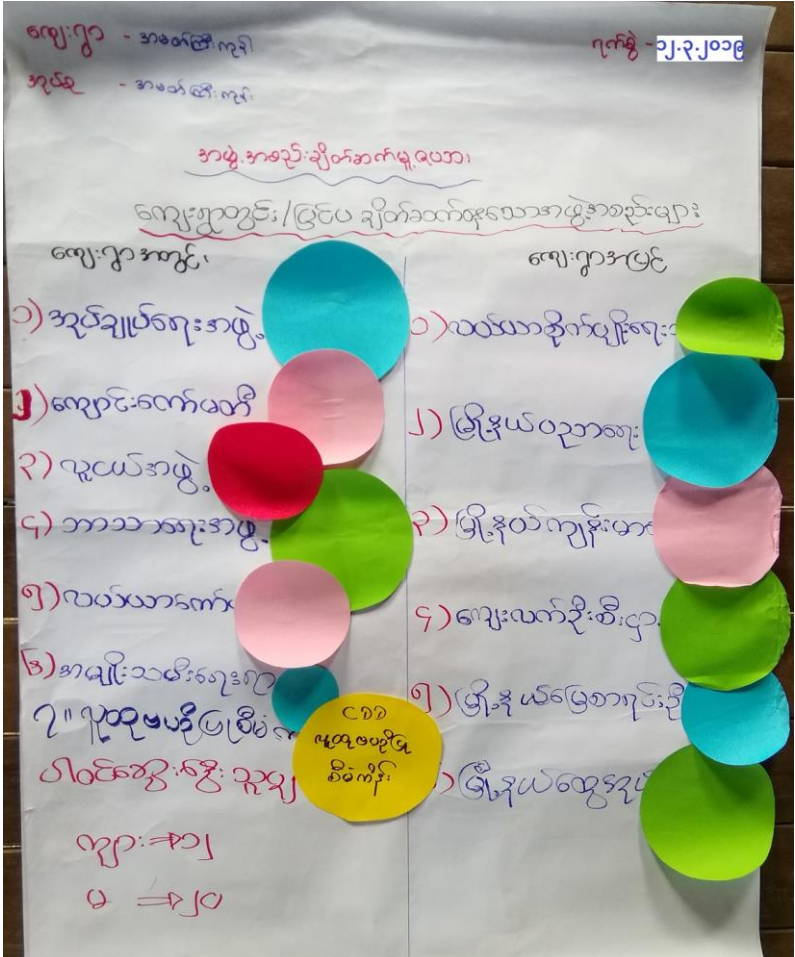 ကျေးရွာ - အမတ်ကြီးကုန်း
ရက်စွဲ - ၁၂.၃.၂၀၁၉
အုပ်စု - အမတ်ကြီးကုန်း
အဖွဲ့အစည်းချိတ်ဆက်မှုဇယား
ကျေးရွာတွင်း/ပြင်ပ ချိတ်ဆက်နေသောအဖွဲ့အစည်းများ
ကျေးရွာအတွင်း
၁) အုပ်ချုပ်ရေးအဖွဲ့
၂) ကျောင်းကော်မတီ
၃) လူငယ်အဖွဲ့
၄) ဘာသာရေးအဖွဲ့
၅) လယ်ယာကော်
၆) အမျိုးသမီးရေးရာ
၇။ လူထုဗဟိုပြုစီမံက
CDD
လူထုဗဟိုပြု
စီမံကိန်း
ပါဝင်ဆွေးနွေးသူများ
ကျား ⇒ ၁၂
မ ⇒ ၂၀
ကျေးရွာအပြင်
၁) လယ်ယာစိုက်ပျိုးရေး
၂) မြို့နယ်ပညာရေး
၃) မြို့နယ်ကျန်းမာ
၄) ကျေးလက်ဦးစီးဌာ
၅) မြို့နယ်မြေစာရင်းဦ
) မြို့နယ်ထွေအုပ်